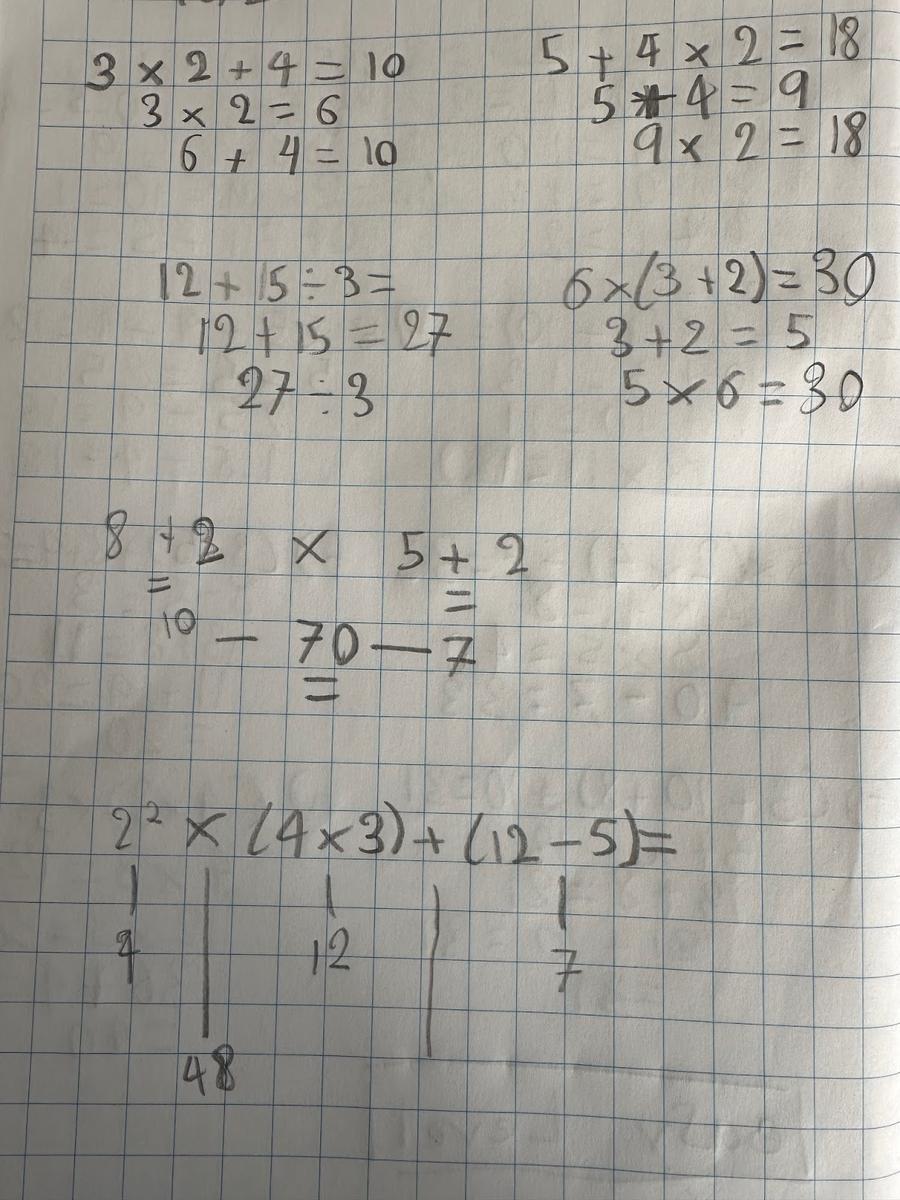 3 × 2 + 4 = 10
3 × 2 = 6
6 + 4 = 10
5 + 4 × 2 = 18
5 + 4 = 9
9 × 2 = 18
12 + 15 ÷ 3 =
12 + 15 = 27
27 ÷ 3
6 × (3 + 2) = 30
3 + 2 = 5
5 × 6 = 30
8 + 2 × 5 + 2
= =
10 — 70 — 7
=
2² × (4 × 3) + (12 − 5) =
4 12 7
48